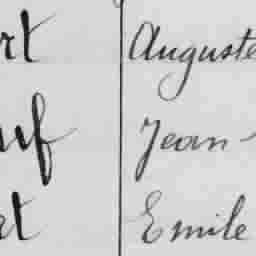 rt Auguste
uf Jean-
rt Emile